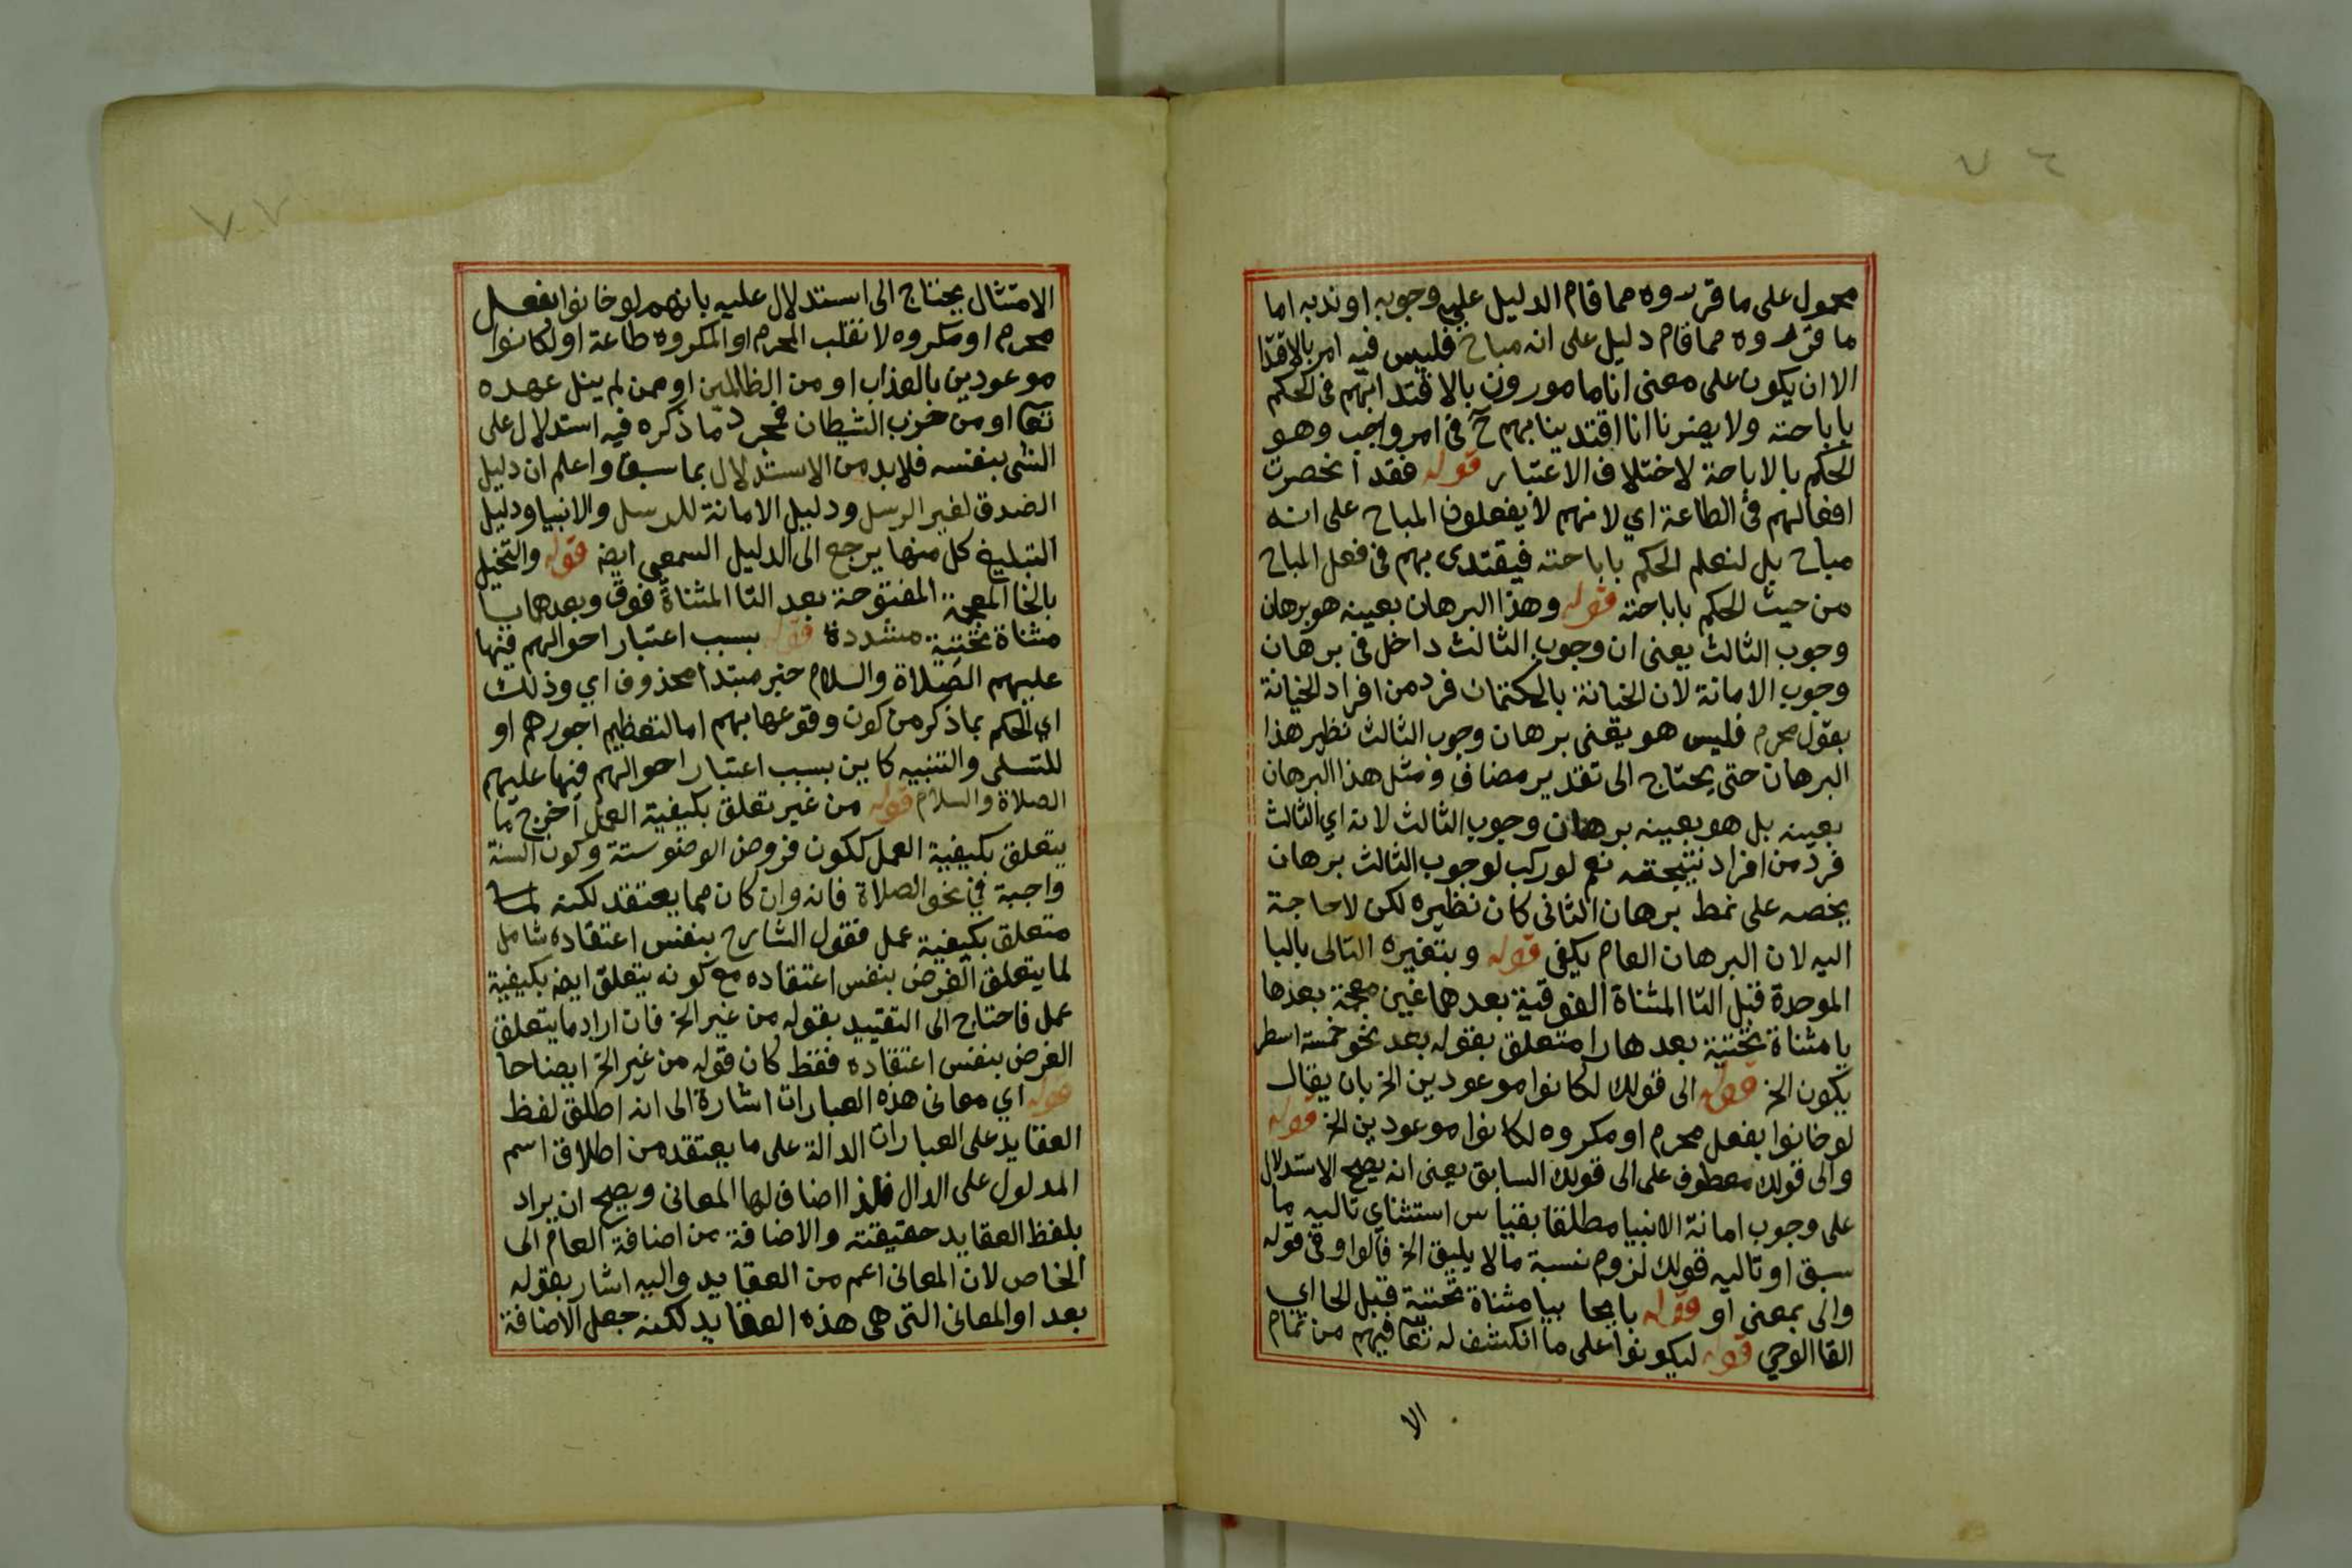 ٧٦
محمول على ما قرروه مما قام الدليل على وجوبه او ندبه اما
ما قرروه مما قام دليل على انه مباح فليس فيه امر بالاقتدا
الا ان يكون على معنى انا مامورون بالاقتدا بهم في الحكم
باباحته ولا يضرنا انا اقتدينا بهم ح في امر واجب وهو
الحكم بالاباحة لاختلاف الاعتبار قوله فقد انحصرت
افعالهم في الطاعة اي لانهم لا يفعلون المباح على انه
مباح بل لنعلم الحكم باباحته فيقتدى بهم في فعل المباح
من حيث الحكم باباحته قوله وهذا البرهان بعينه هو برهان
وجوب الثالث يعنى ان وجوب الثالث داخل في برهان
وجوب الامانة لان الخيانة بالكتمان فرد من افراد الخيانة
بفول محرم فليس هو يعنى برهان وجوب الثالث نظير هذا
البرهان حتى يحتاج الى تقدير مضاف ومثل هذا البرهان
بعينه بل هو بعينه برهان وجوب الثالث لانه اي الثالث
فرد من افراد نتيجته نعم لو ركب لوجوب الثالث برهان
يخصه على نمط برهان الثانى كان نظيره لكن لا حاجة
اليه لان البرهان العام يكفى قوله وبتغيره التالى بالبا
الموحدة قبل التا المثناة الفوقية بعدهما غين معجمة بعدها
يا مثناة تحتية بعدها را متعلق بقوله بعد نحو خمسة اسطر
يكون الخ قوله الى قولك لكانوا موعودين الخ بان يقال
لو خانوا بفعل محرم او مكروه لكانوا موعودين الخ قوله
والى قولك معطوف على الى قولك السابق يعنى انه يصح الاستدلال
على وجوب امانة الانبيا مطلقا بقياس استثناي تاليه ما
سبق او تاليه قولك لزوم نسبة ما لا يليق الخ فالواو في قوله
والى بمعنى او قوله بايحا بيا مثناة تحتية قبل الحا اي
القا الوحي قوله ليكونوا على ما انكشف له تعا فيهم من تمام
الا
٧٧
الامتثال يحتاج الى استدلال عليه بانهم لو خانوا بفعل
محرم او مكروه لانقلب المحرم او المكروه طاعة او لكانوا
موعودين بالعذاب او من الظالمين او ممن لم ينل عهده
تعا او من حزب الشيطان فمجرد ما ذكره فيه استدلال على
الشى بنفسه فلا بد من الاستدلال بما سبق واعلم ان دليل
الصدق لغير الرسل ودليل الامانة للرسل والانبيا ودليل
التبليغ كل منها يرجع الى الدليل السمعى ايضه قوله والتخيل
بالخا المعجمة المفتوحة بعد التا المثناة فوق وبعدها يا
مثناة تحتية مشددة قوله بسبب اعتبار احوالهم فيها
عليهم الصلاة والسلام خبر مبتدا محذوف اي وذلك
اي الحكم بما ذكر من كون وقوعها بهم اما لتعظيم اجورهم او
للتسلى والتنبيه كاين بسبب اعتبار احوالهم فيها عليهم
الصلاة والسلام قوله من غير تعلق بكيفية العمل اخرج ما
يتعلق بكيفية العمل ككون فروض الوضو ستة وكون السنة
واجبة في نحو الصلاة فانه وان كان مما يعتقد لكنه لما
متعلق بكيفية عمل فقول الشارح بنفس اعتقاده شامل
لما يتعلق الغرض بنفس اعتقاده مع كونه يتعلق ايضه بكيفية
عمل فاحتاج الى التقييد بقوله من غير الخ فان اراد ما يتعلق
الغرض بنفس اعتقاده فقط كان قوله من غير الخ ايضاحا
قوله اي معانى هذه العبارات اشارة الى انه اطلق لفظ
العقايد على العبارات الدالة على ما يعتقد من اطلاق اسم
المدلول على الدال فلذا اضاف لها المعانى ويصح ان يراد
بلفظ العقايد حقيقته والاضافة من اضافة العام الى
الخاص لان المعانى اعم من العقايد واليه اشار بقوله
بعد او المعانى التى هى هذه العقايد لكنه جعل الاضافة